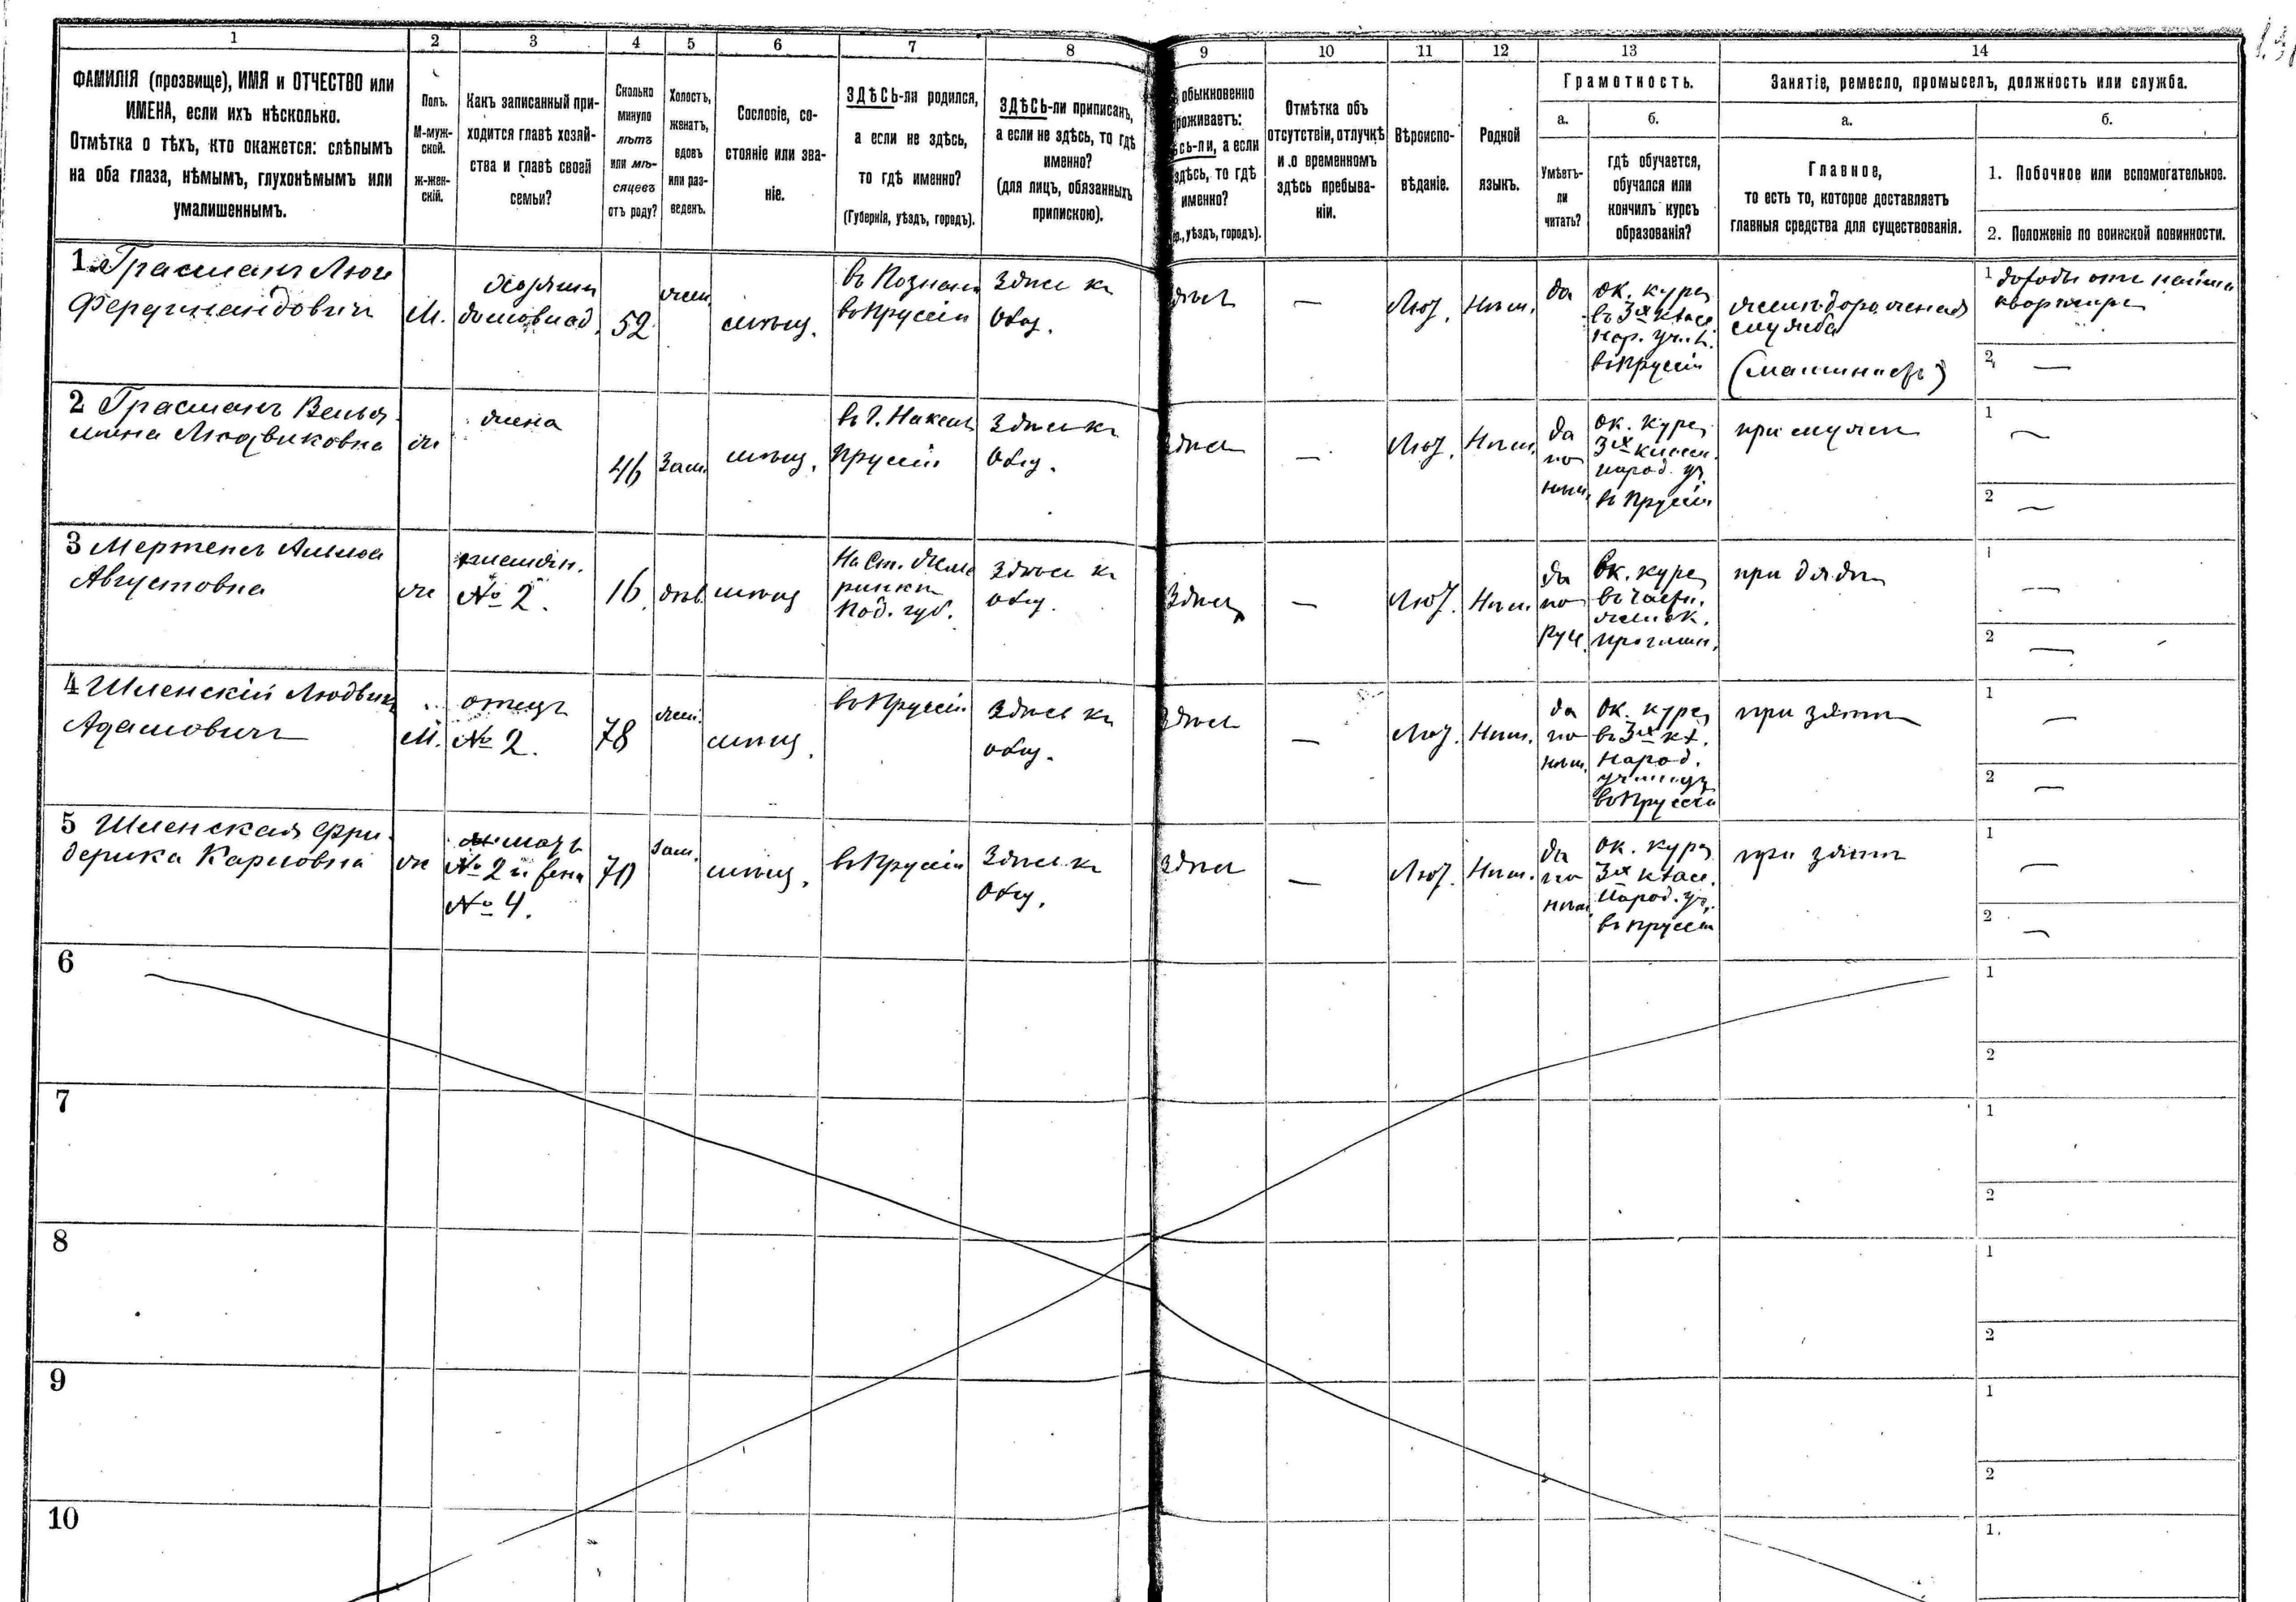 1
2
3
4
5
6
7
8
9
10
11
12
13
14
ФАМИЛІЯ (прозвище), ИМЯ и ОТЧЕСТВО или
ИМЕНА, если ихъ нѣсколько.
Отмѣтка о тѣхъ, кто окажется: слѣпымъ
на оба глаза, нѣмымъ, глухонѣмымъ или
умалишеннымъ.
Полъ.
М-муж-
ской.
ж-жен-
скій.
Какъ записанный при-
ходится главѣ хозяй-
ства и главѣ своей
семьи?
Сколько
минуло
лѣтъ
или мѣ-
сяцевъ
отъ роду?
Холостъ,
женатъ,
вдовъ
или раз-
веденъ.
Сословіе, со-
стояніе или зва-
ніе.
ЗДѢСЬ-ли родился,
а если не здѣсь,
то гдѣ именно?
(Губернія, уѣздъ, городъ).
ЗДѢСЬ-ли приписанъ,
а если не здѣсь, то гдѣ
именно?
(для лицъ, обязанныхъ
припискою).
обыкновенно
роживаетъ:
сь-ли, а если
здѣсь, то гдѣ
именно?
уѣздъ, городъ).
Отмѣтка объ
отсутствіи, отлучкѣ
и о временномъ
здѣсь пребыва-
ніи.
Вѣроиспо-
вѣданіе.
Родной
языкъ.
Грамотность.
а.
Умѣетъ-
ли
читать?
б.
гдѣ обучается,
обучался или
кончилъ курсъ
образованія?
Занятіе, ремесло, промыселъ, должность или служба.
а.
Главное,
то есть то, которое доставляетъ
главныя средства для существованія.
б.
1. Побочное или вспомогательное.
2. Положеніе по воинской повинности.
1 Грасманъ
Фердинандовичъ
М.
хозяинъ
домовлад.
52
жен.
мѣщ.
въ Познани
въ Пруссіи
Здѣсь къ
общ.
здѣсь
—
Лют.
Нѣм.
да
ок. курсъ
въ 3х класс.
нар. уч.
въ Пруссіи
желѣзнодорожная
служба
(машинистъ)
1 доходы отъ найма
квартиръ
2 —
2 Грасманъ Вильгель
мина Людвиковна
ж
жена
46
Зам.
мѣщ.
въ г. Накель
Пруссіи
Здѣсь къ
общ.
Здѣсь
—
Лют.
Нѣм.
да
по
нѣм.
ок. курсъ
3х класс.
народ. уч.
въ Пруссіи
при мужѣ
1 —
2 —
3 Мертенсъ
Августовна
ж
племян.
№ 2.
16
дѣв.
мѣщ
На ст. Жме
ринкѣ
Под. губ.
Здѣсь къ
общ.
Здѣсь
—
Лют.
Нѣм.
да
по
русс.
Ок. курсъ
въ частн.
женск.
прогимн.
при дядѣ
1 —
2 —
4 Шленскій Людвигъ
Адамовичъ
М.
отецъ
№ 2.
78
жен.
мѣщ.
въ Пруссіи
Здѣсь къ
общ.
Здѣсь
—
Лют.
Нѣм.
да
по
нѣм.
ок. курсъ
въ 3х кл.
народ.
училищѣ
въ Пруссіи
при зятѣ
1 —
2 —
5 Шленская Фри
дерика Карловна
ж
мать
№ 2 и жена
№ 4.
70
зам.
мѣщ.
въ Пруссіи
Здѣсь къ
общ.
Здѣсь
—
Лют.
Нѣм.
да
по
нѣм.
ок. курсъ
3х класс.
народ. уч.
въ Пруссіи
при зятѣ
1 —
2 —
6
1
2
7
1
2
8
1
2
9
1
2
10
1.